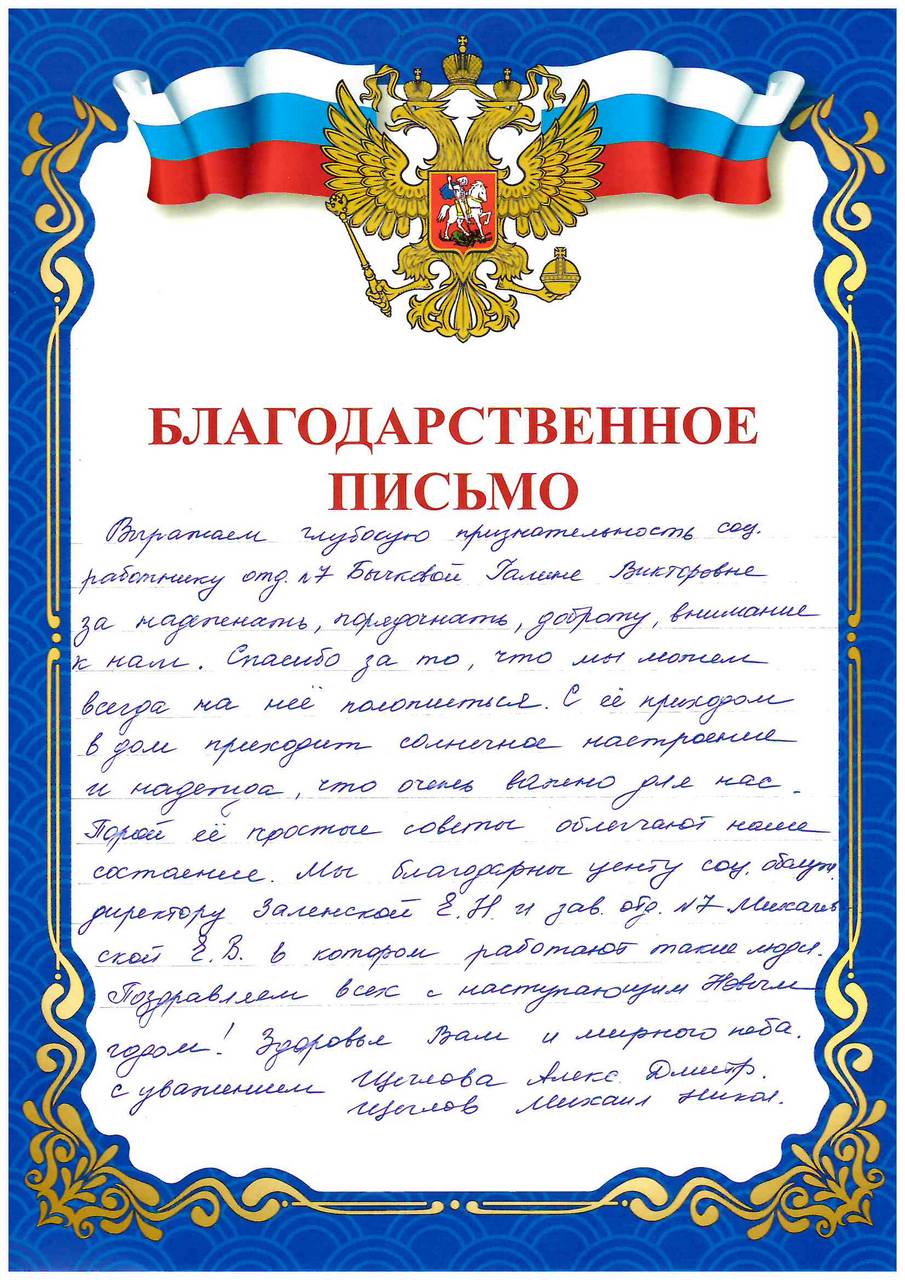 БЛАГОДАРСТВЕННОЕ
ПИСЬМО
Выражаем глубокую признательность соц.
работнику отд. №7 Бычковой Галине Викторовне
за надежнать, порядочнать, доброту, внимание
к нам. Спасибо за то, что мы можем
всегда на неё положиться. С её приходом
в дом приходит солнечное настроение
и надежда, что очень важно для нас.
Порой её простые советы облегчают наше
состаение. Мы благодарны центу соц. обслуж.
директору Заленской Е.Н. и зав. отд. №7 Михалев
ской Е.В. в котором работают такие люди.
Поздравляем всех с наступающим Новым
годом! Здоровья Вам и мирного неба.
с уважением Щеглова Алекс. Дмитр.
Щеглов Михаил Никол.